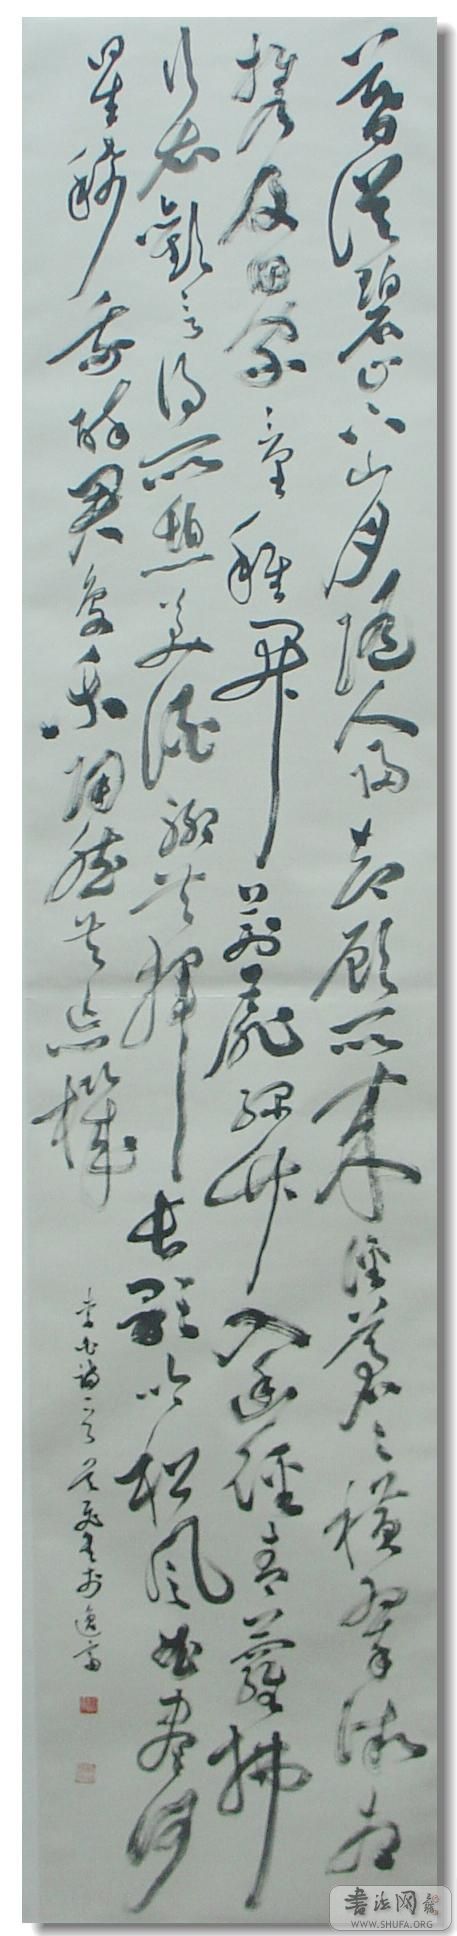 暮從碧山下山月隨人歸却顧所來徑蒼々橫翠微相
攜及田家童稚開荊扉綠竹入幽徑青蘿拂
行衣歡言得所憩美酒聊共揮長歌吟松風曲盡河
星稀我醉君復樂陶然共忘機
李白詩一首
書法网
WWW.SHUFA.ORG